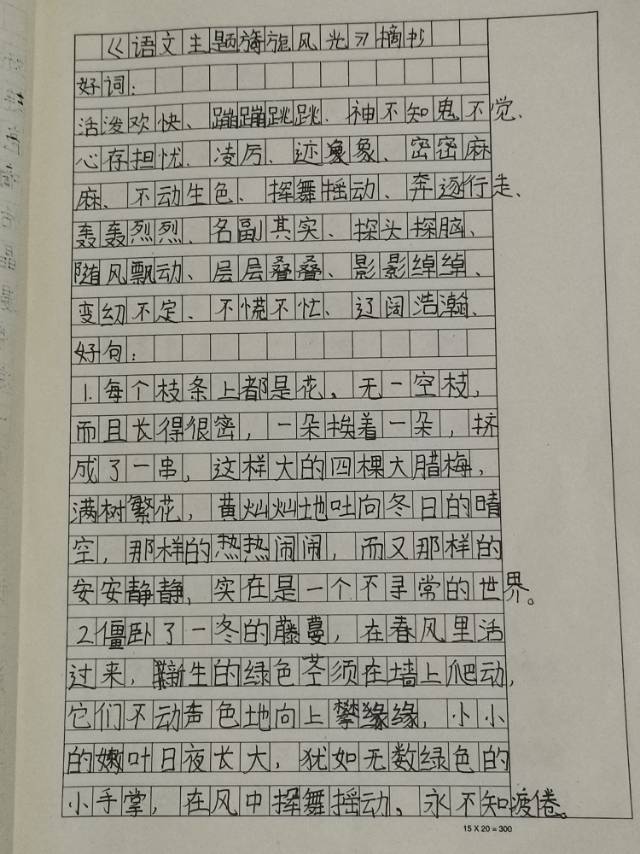 《语文主题旖旎风光》摘书
好词：
活泼欢快、蹦蹦跳跳、神不知鬼不觉、
心存担忧、凌厉、迹象、密密麻
麻、不动生色、挥舞摇动、奔逐行走、
轰轰烈烈、名副其实、探头探脑、
随风飘动、层层叠叠、影影绰绰、
变幻不定、不慌不忙、辽阔浩瀚、
好句：
1.每个枝条上都是花、无一空枝，
而且长得很密，一朵挨着一朵，挤
成了一串，这样大的四棵大腊梅，
满树繁花，黄灿灿地吐向冬日的晴
空，那样的热热闹闹，而又那样的
安安静静，实在是一个不寻常的世界。
2.僵卧了一冬的藤蔓，在春风里活
过来，新生的绿色茎须在墙上爬动，
它们不动声色地向上攀缘，小小
的嫩叶日夜长大，犹如无数绿色的
小手掌，在风中挥舞摇动、永不知疲倦。
15×20=300